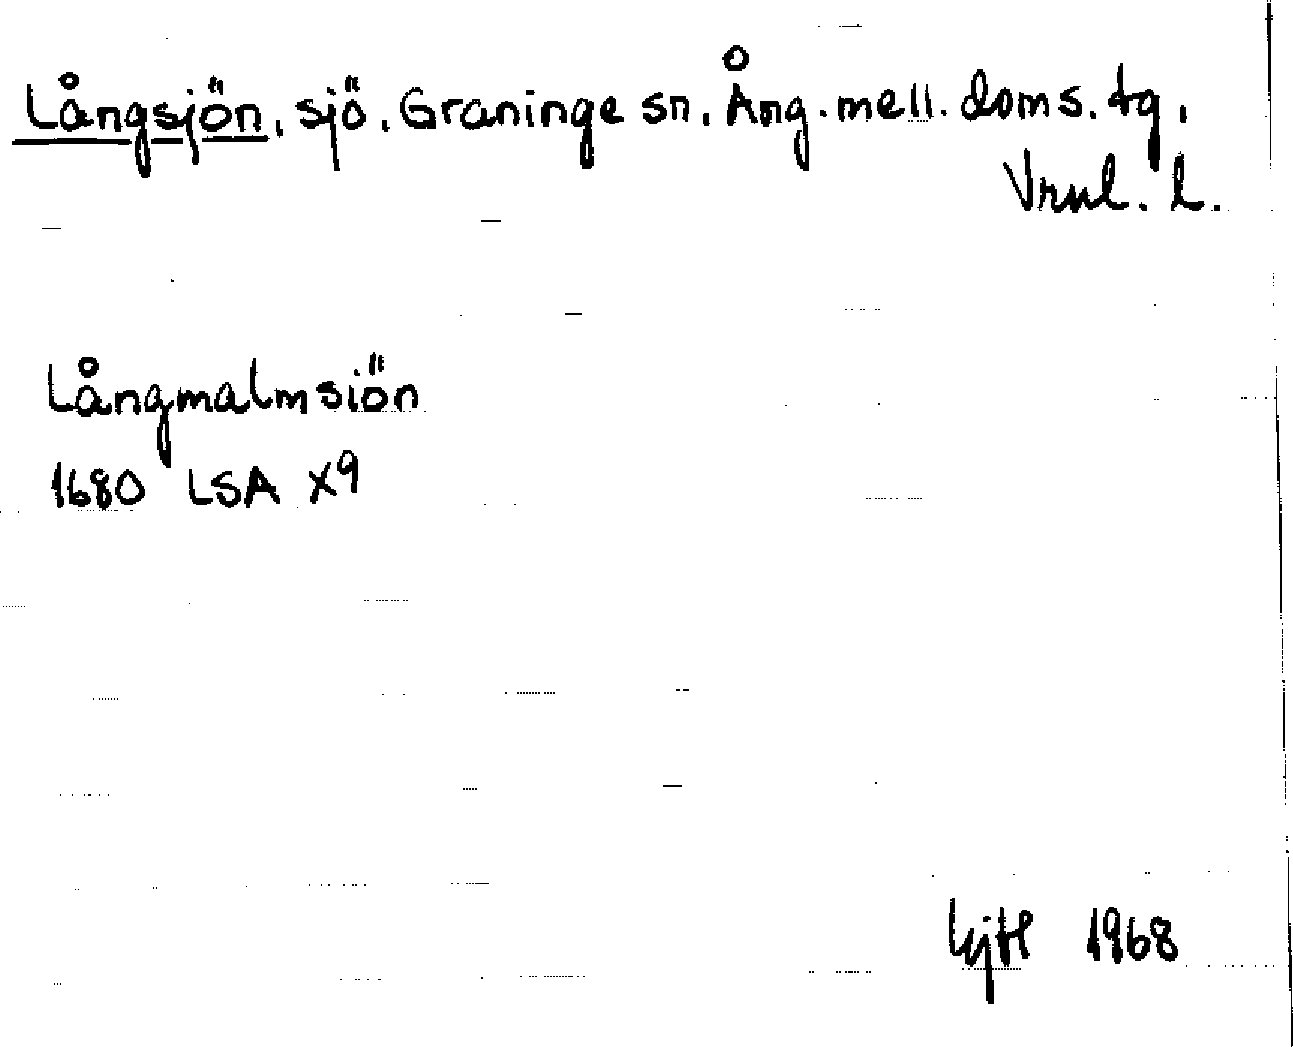 Långsjön, sjö, Graninge sn, Ång. mell. doms. tg,
Vrml. l.
Långmalmsiön
1680 LSA X9
1968